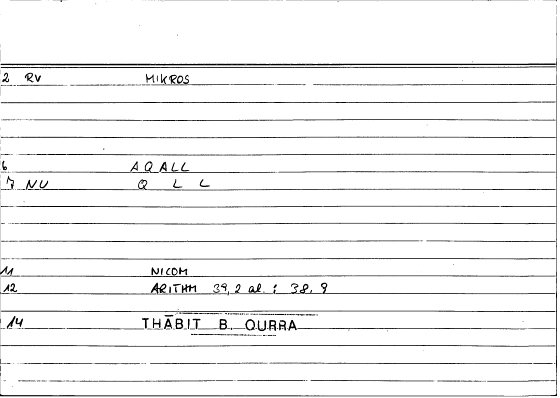 2 RV MIKROS
6 AQALL
7 NU Q L L
11 NICOM
12 ARITHM 39,2 al. : 38,9
14 THĀBIT B. QURRA